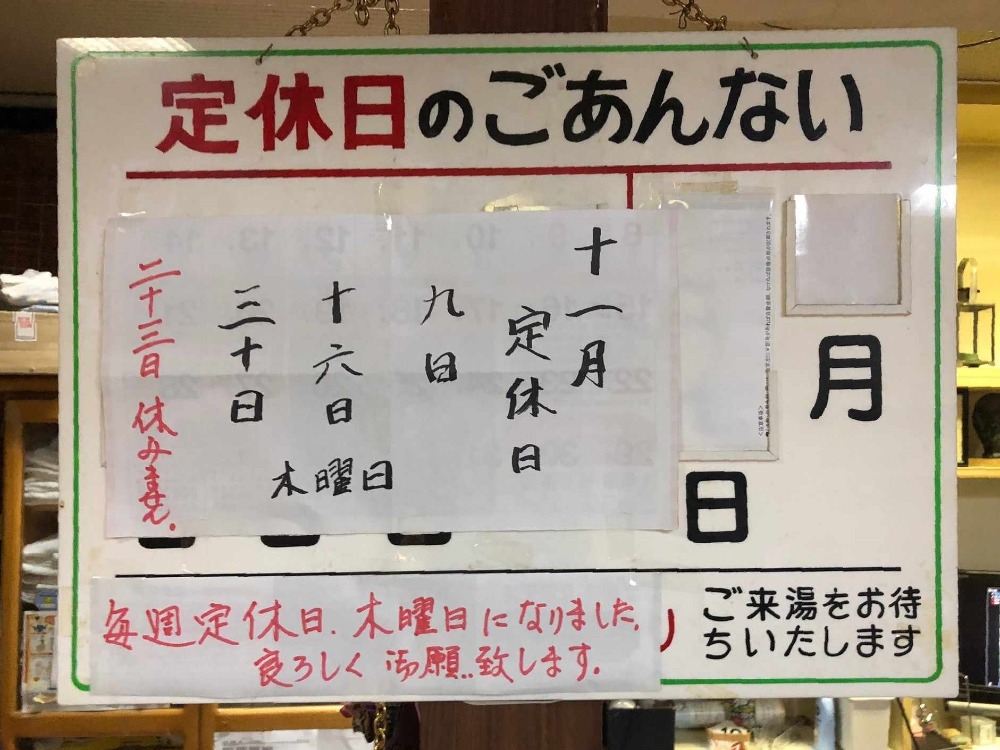 定休日のごあんない
十一月
定休日
九日
十六日
三十日
木曜日
二十三日 休みません。
月
日
毎週定休日、木曜日になりました。
良ろしく御願い致します。
ご来湯をお待
ちいたします